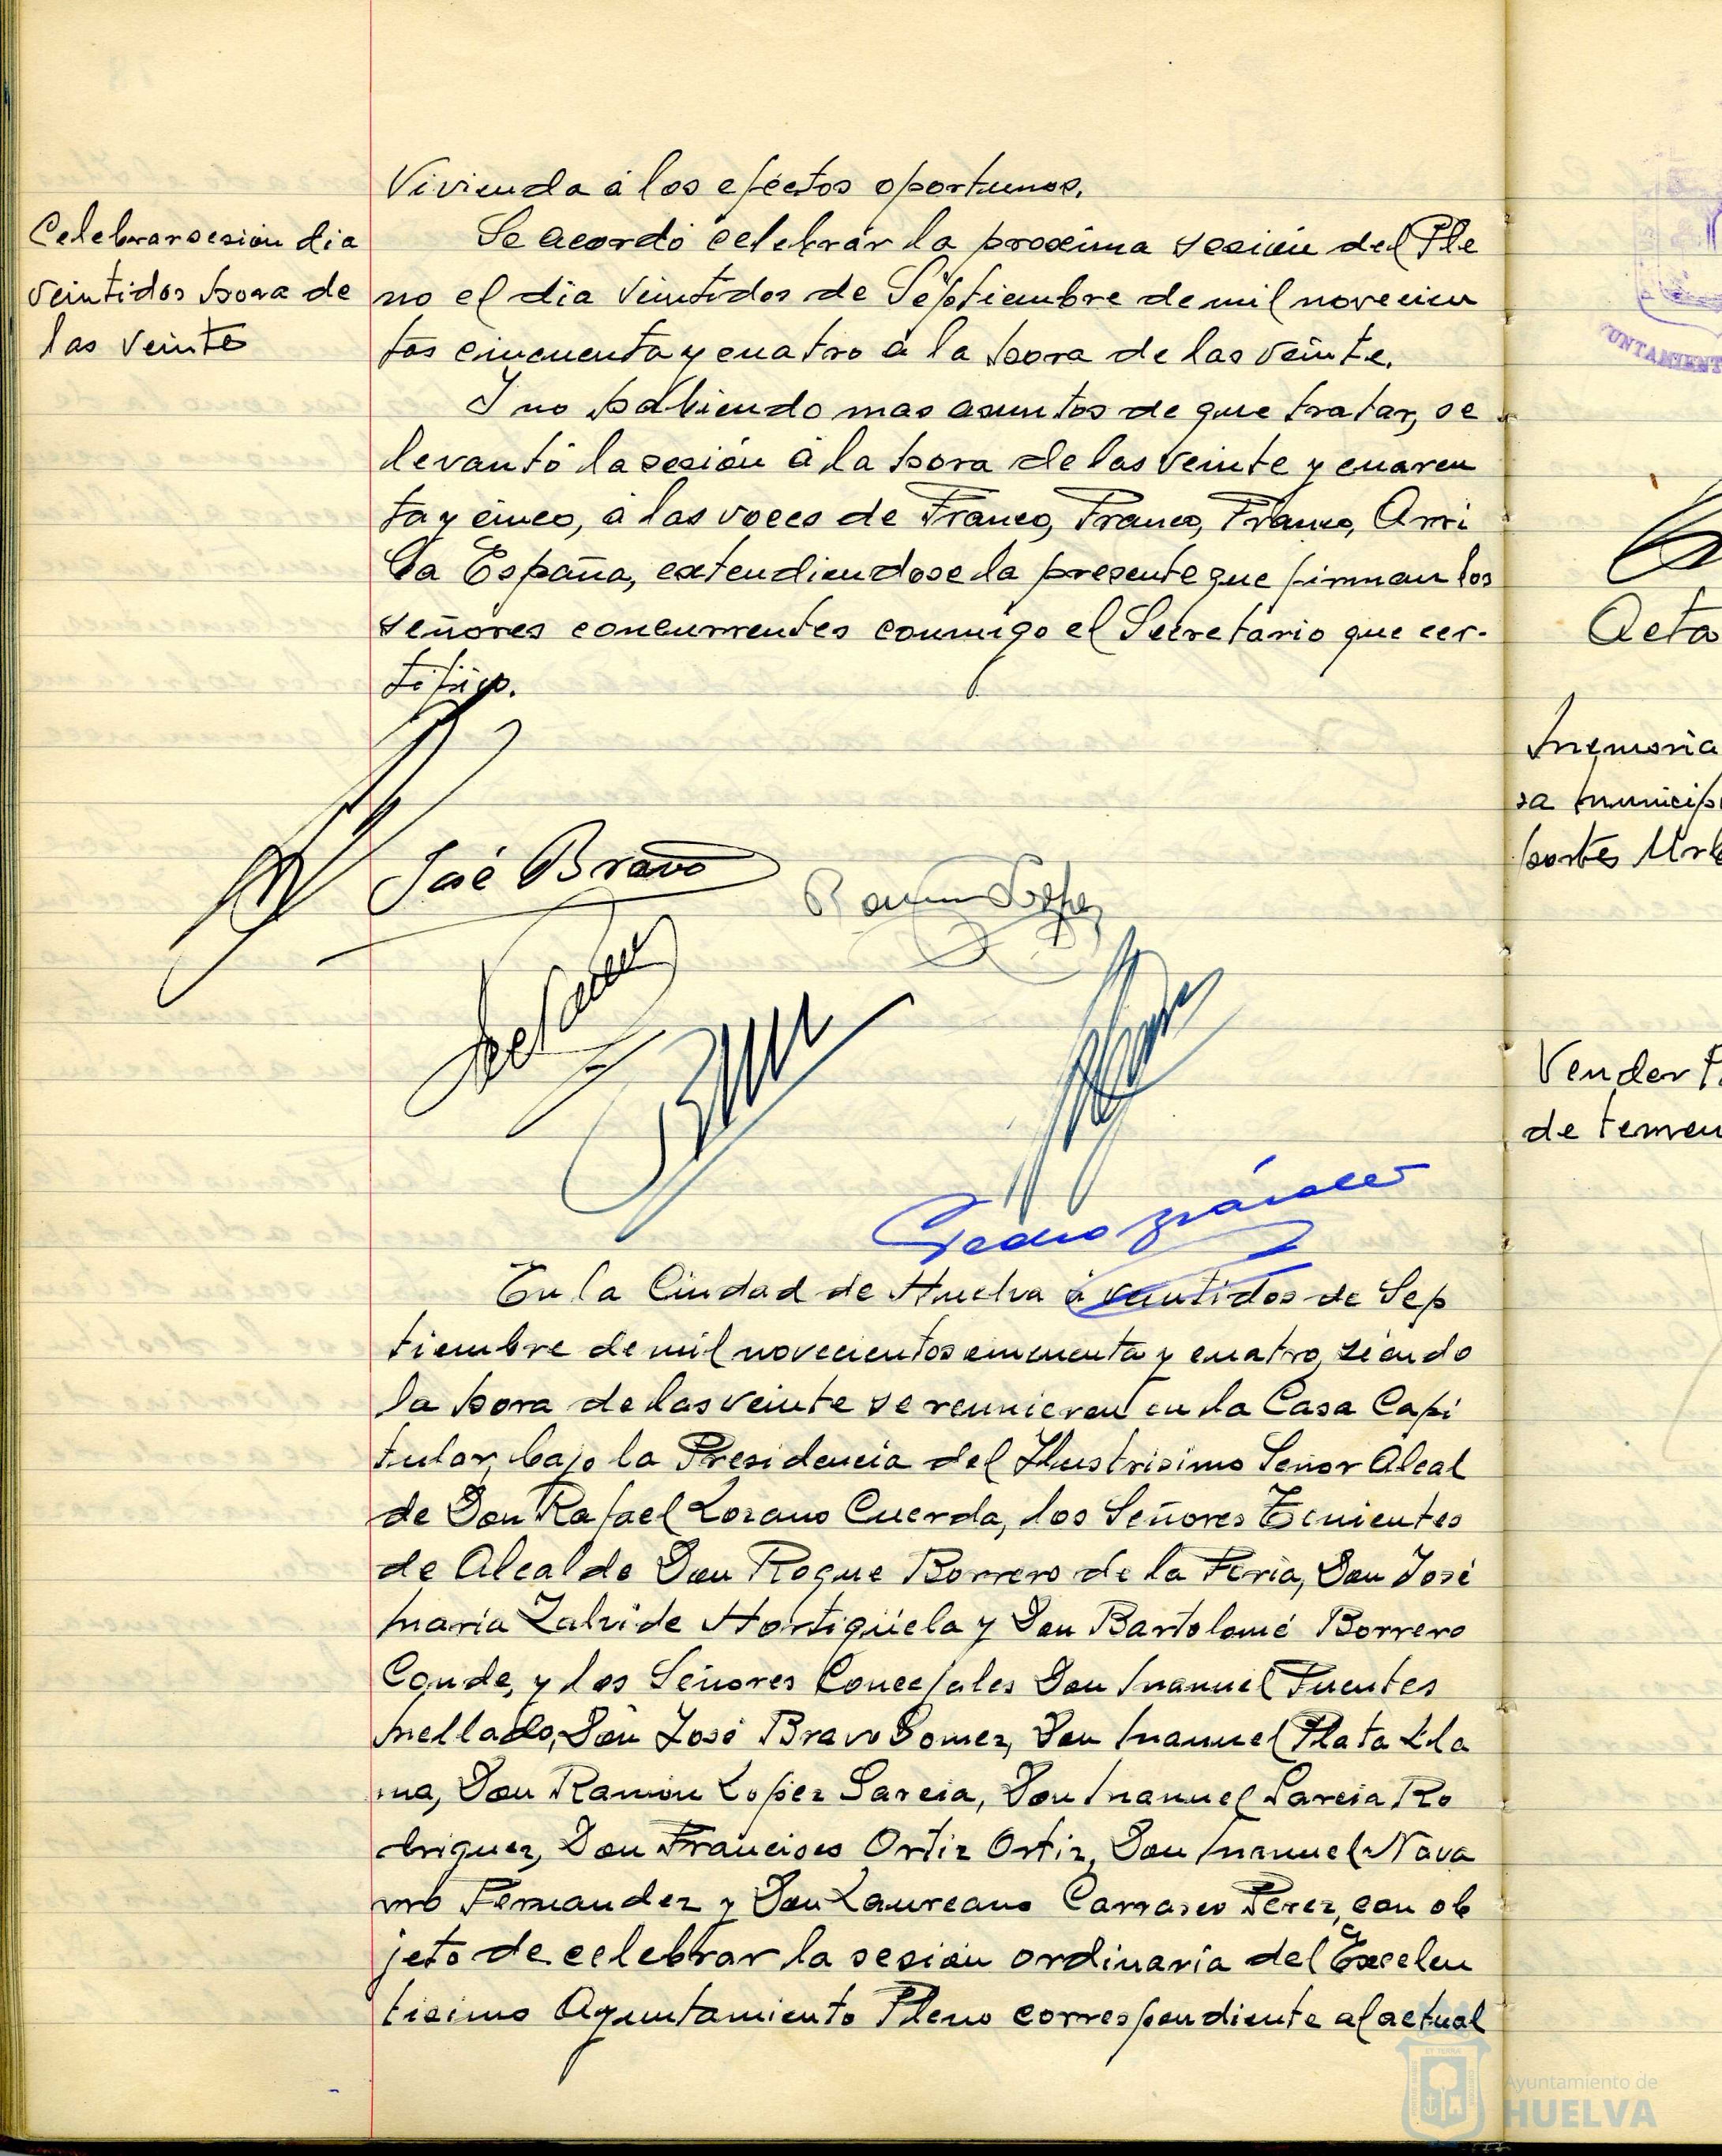 Vivienda á los eféctos oportunos.
Celebrar sesión dia
veintidos hora de
las veinte
Se acordó celebrar la proxima sesión del Ple
no el dia veintidos de Septiembre de mil novecien
tos cincuenta y cuatro á la hora de las veinte.
Y no habiendo mas asuntos de que tratar, se
levantó la sesión á la hora de las veinte y cuaren
ta y cinco, á las voces de Franco, Franco, Franco, Arri
ba España, extendiendose la presente que firman los
señores concurrentes conmigo el Secretario que cer-
tifico.
José Bravo
Ramon Lopez
Pedro
En la Ciudad de Huelva á veintidos de Sep
tiembre de mil novecientos cincuenta y cuatro, siendo
la hora de las veinte se reunieron en la Casa Capi
tular, bajo la Presidencia del Ilustrisimo Señor Alcal
de Don Rafael Lozano Cuerda, los Señores Tenientes
de Alcalde Don Roque Borrero de la Feria, Don José
Maria Zalvide Hortigüela y Don Bartolomé Borrero
Conde, y los Señores Concejales Don Manuel Fuentes
Mellado, Don José Bravo Gomez, Don Manuel Plata Lla
na, Don Ramón Lopez Garcia, Don Manuel Garcia Ro
driguez, Don Francisco Ortiz Ortiz, Don Manuel Nava
rro Fernandez y Don Laureano Carrasco Perez, con ob
jeto de celebrar la sesión ordinaria del Excelen
tisimo Ayuntamiento Pleno correspondiente al actual
UNTAMIENT
Acta
Memoria
sa municip
portes Urb
Vender
de terren
Ayuntamiento de
HUELVA